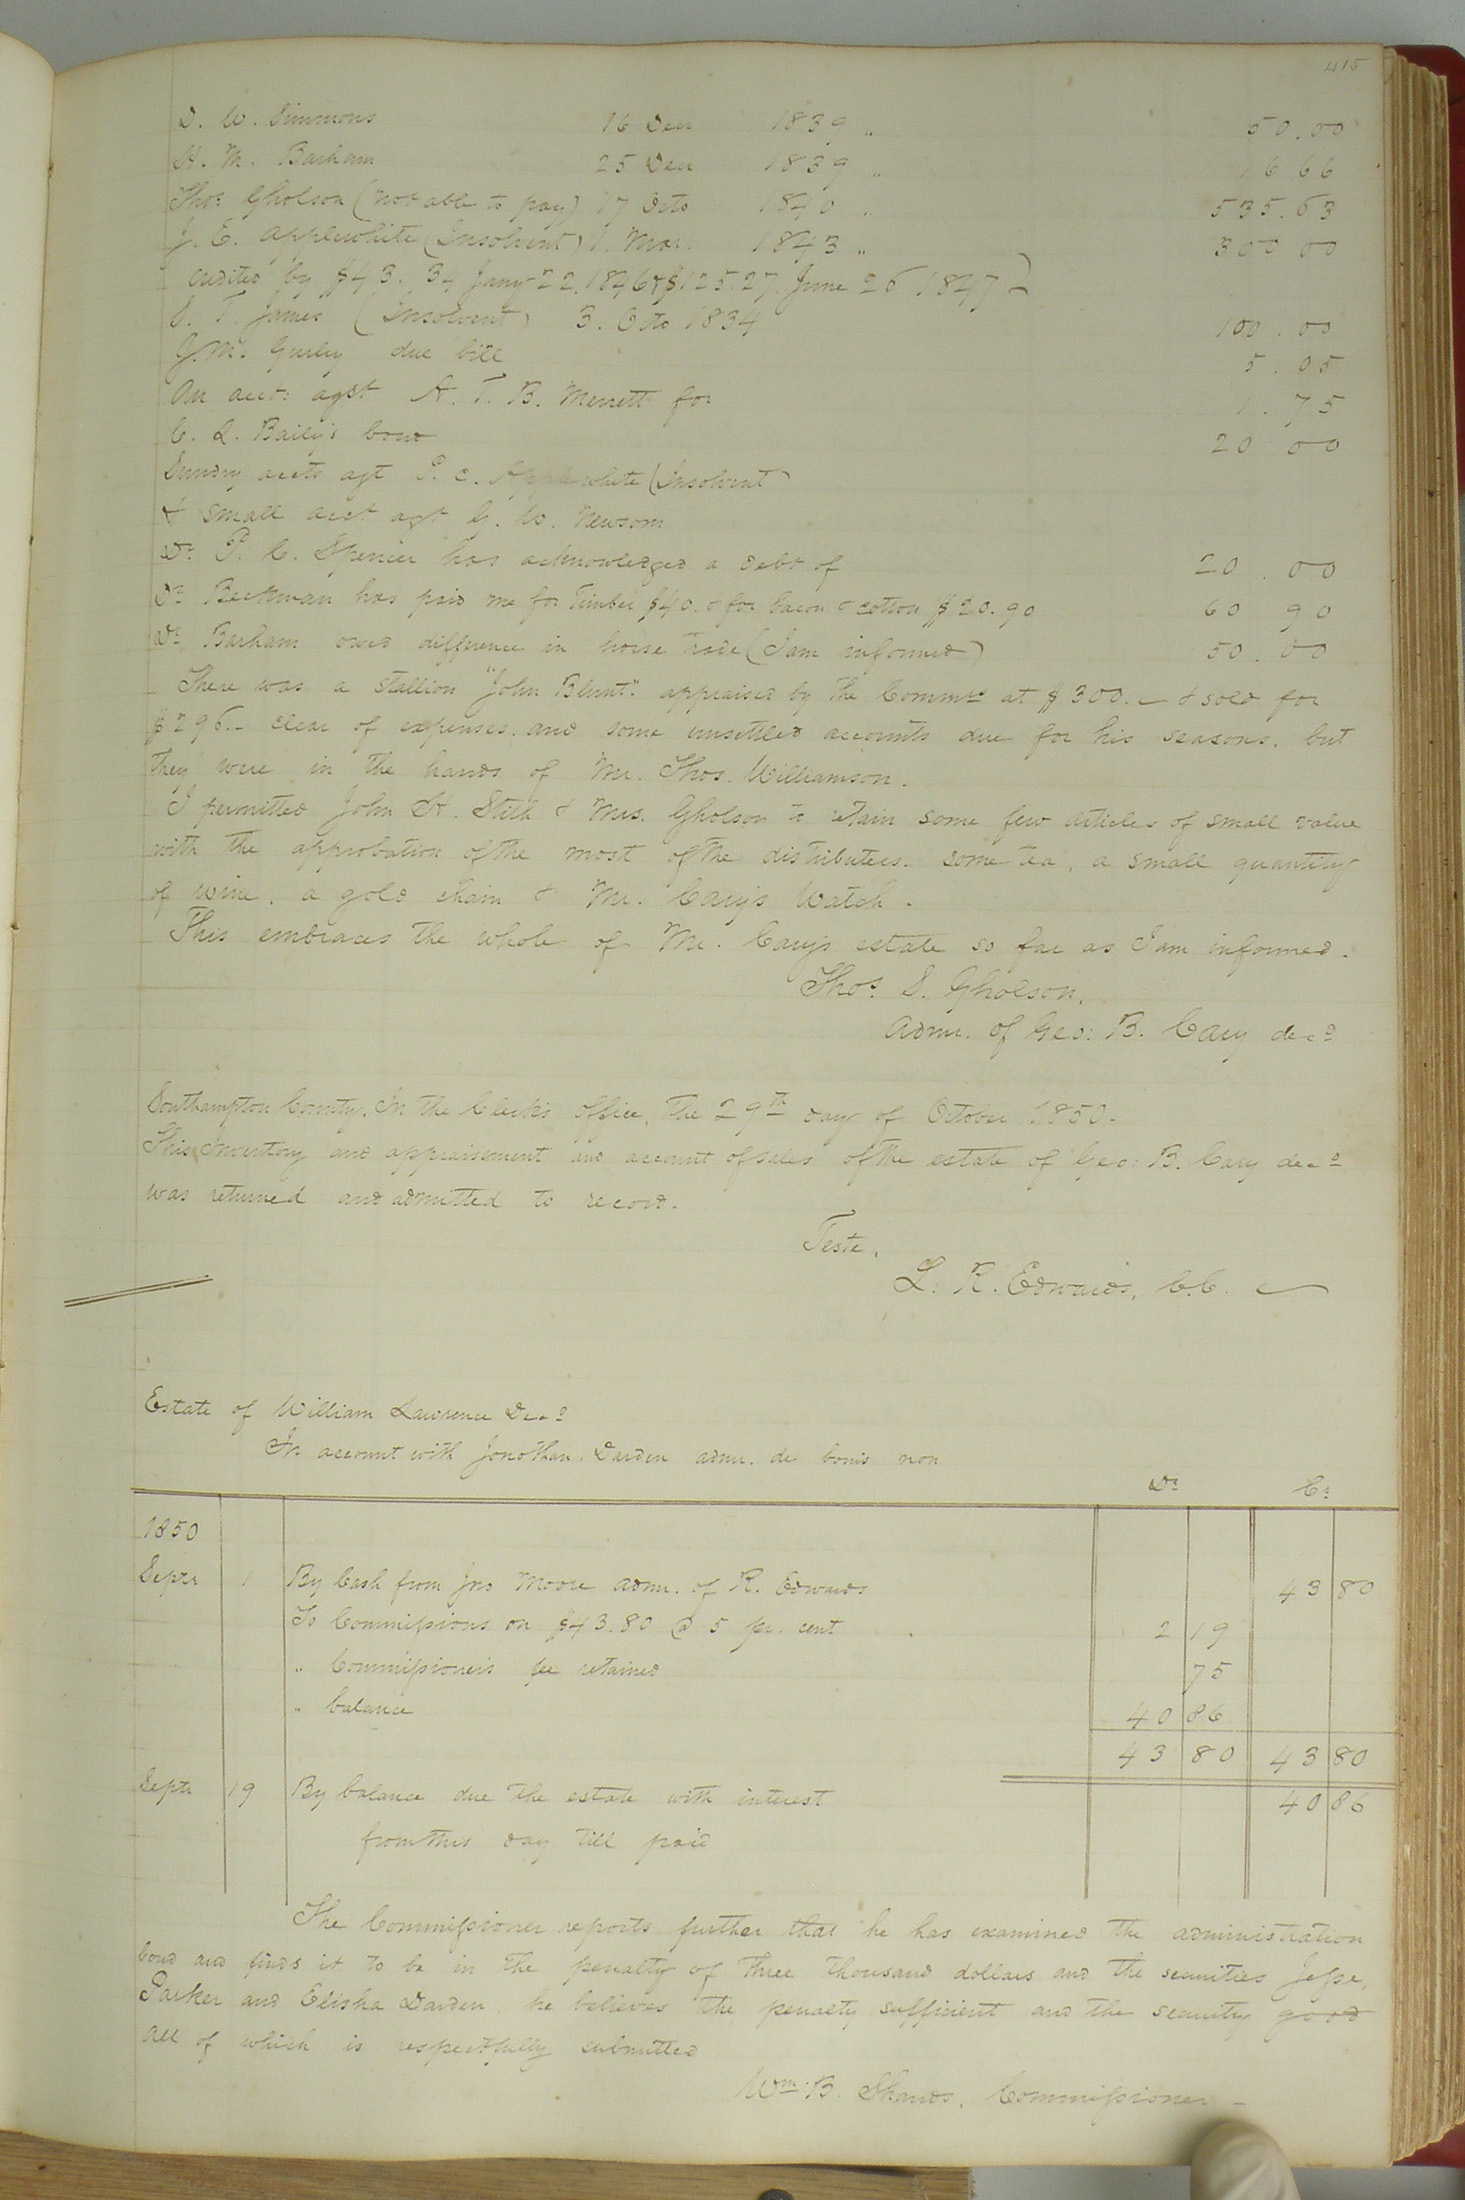 415
D. W. Simmons 16 Decr 1839 " 50.00
H. M. Barham 25 Decr 1839 " 6 66
Thos: Gholson (not able to pay) 17 Octo 1840 " 535.63
J. E. Applewhite (Insolvent) 1. Mar. 1843 " 300 00
credited by $43.34 Jany 22. 1846 & $125.27. June 26 1847)
S. T. James (Insolvent) 3. Octo 1834 100.00
G. M. Gurley due bill 5.05
An acct: agst A. T. B. Merrett for 1.75
C. L. Baily's bond 20 00
Sundry accts agt P. C. Applewhite (Insolvent)
& small acct agt G. W. Newsom
Dr. P. C. Spencer has acknowledged a debt of 20.00
Dr Beekman has paid me for Timber $40. & for bacon & cotton $20.90 60 90
Dr Barham owed difference in horse trade (I am informed) 50.00
There was a stallion "John Blunt" appraised by the Commrs at $300.– & sold for
$296.– clear of expenses. and some unsettled accounts due for his seasons. but
they were in the hands of Mr. Thos. Williamson.
I permitted John H. Stith & Mrs. Gholson to retain some few articles of small value
with the approbation of the most of the distributees. some tea, a small quantity
of wine, a gold chain & Mr. Cary's Watch.
This embraces the whole of Mr. Cary's estate so far as I am informed.
Thos. S. Gholson.
Admr. of Geo: B. Cary decd
Southampton County, In the Clerk's office, the 29th day of October 1850.
This Inventory and appraisement and account of sales of the estate of Geo: B. Cary decd
was returned and admitted to record.
Teste,
L. R. Edwards, C.C.
Estate of William Lawrence Decd
In account with Jonathan Darden admr. de bonis non
Dr Cr
1850
Septr 1 By Cash from Jno Moore admr. of R. Edwards 43 80
To Commissions on $43.80 @ 5 pr. cent 2 19
" Commissioner's fee retained 75
" balance 40 86
43 80 43 80
Septr 19 By balance due the estate with interest 40 86
from this day till paid
The Commissioner reports further that he has examined the administration
bond and finds it to be in the penalty of three thousand dollars and the securities Jesse,
Parker and Elisha Darden. he believes the penalty sufficient and the security good
All of which is respectfully submitted
Wm. B. Shands, Commissioner –